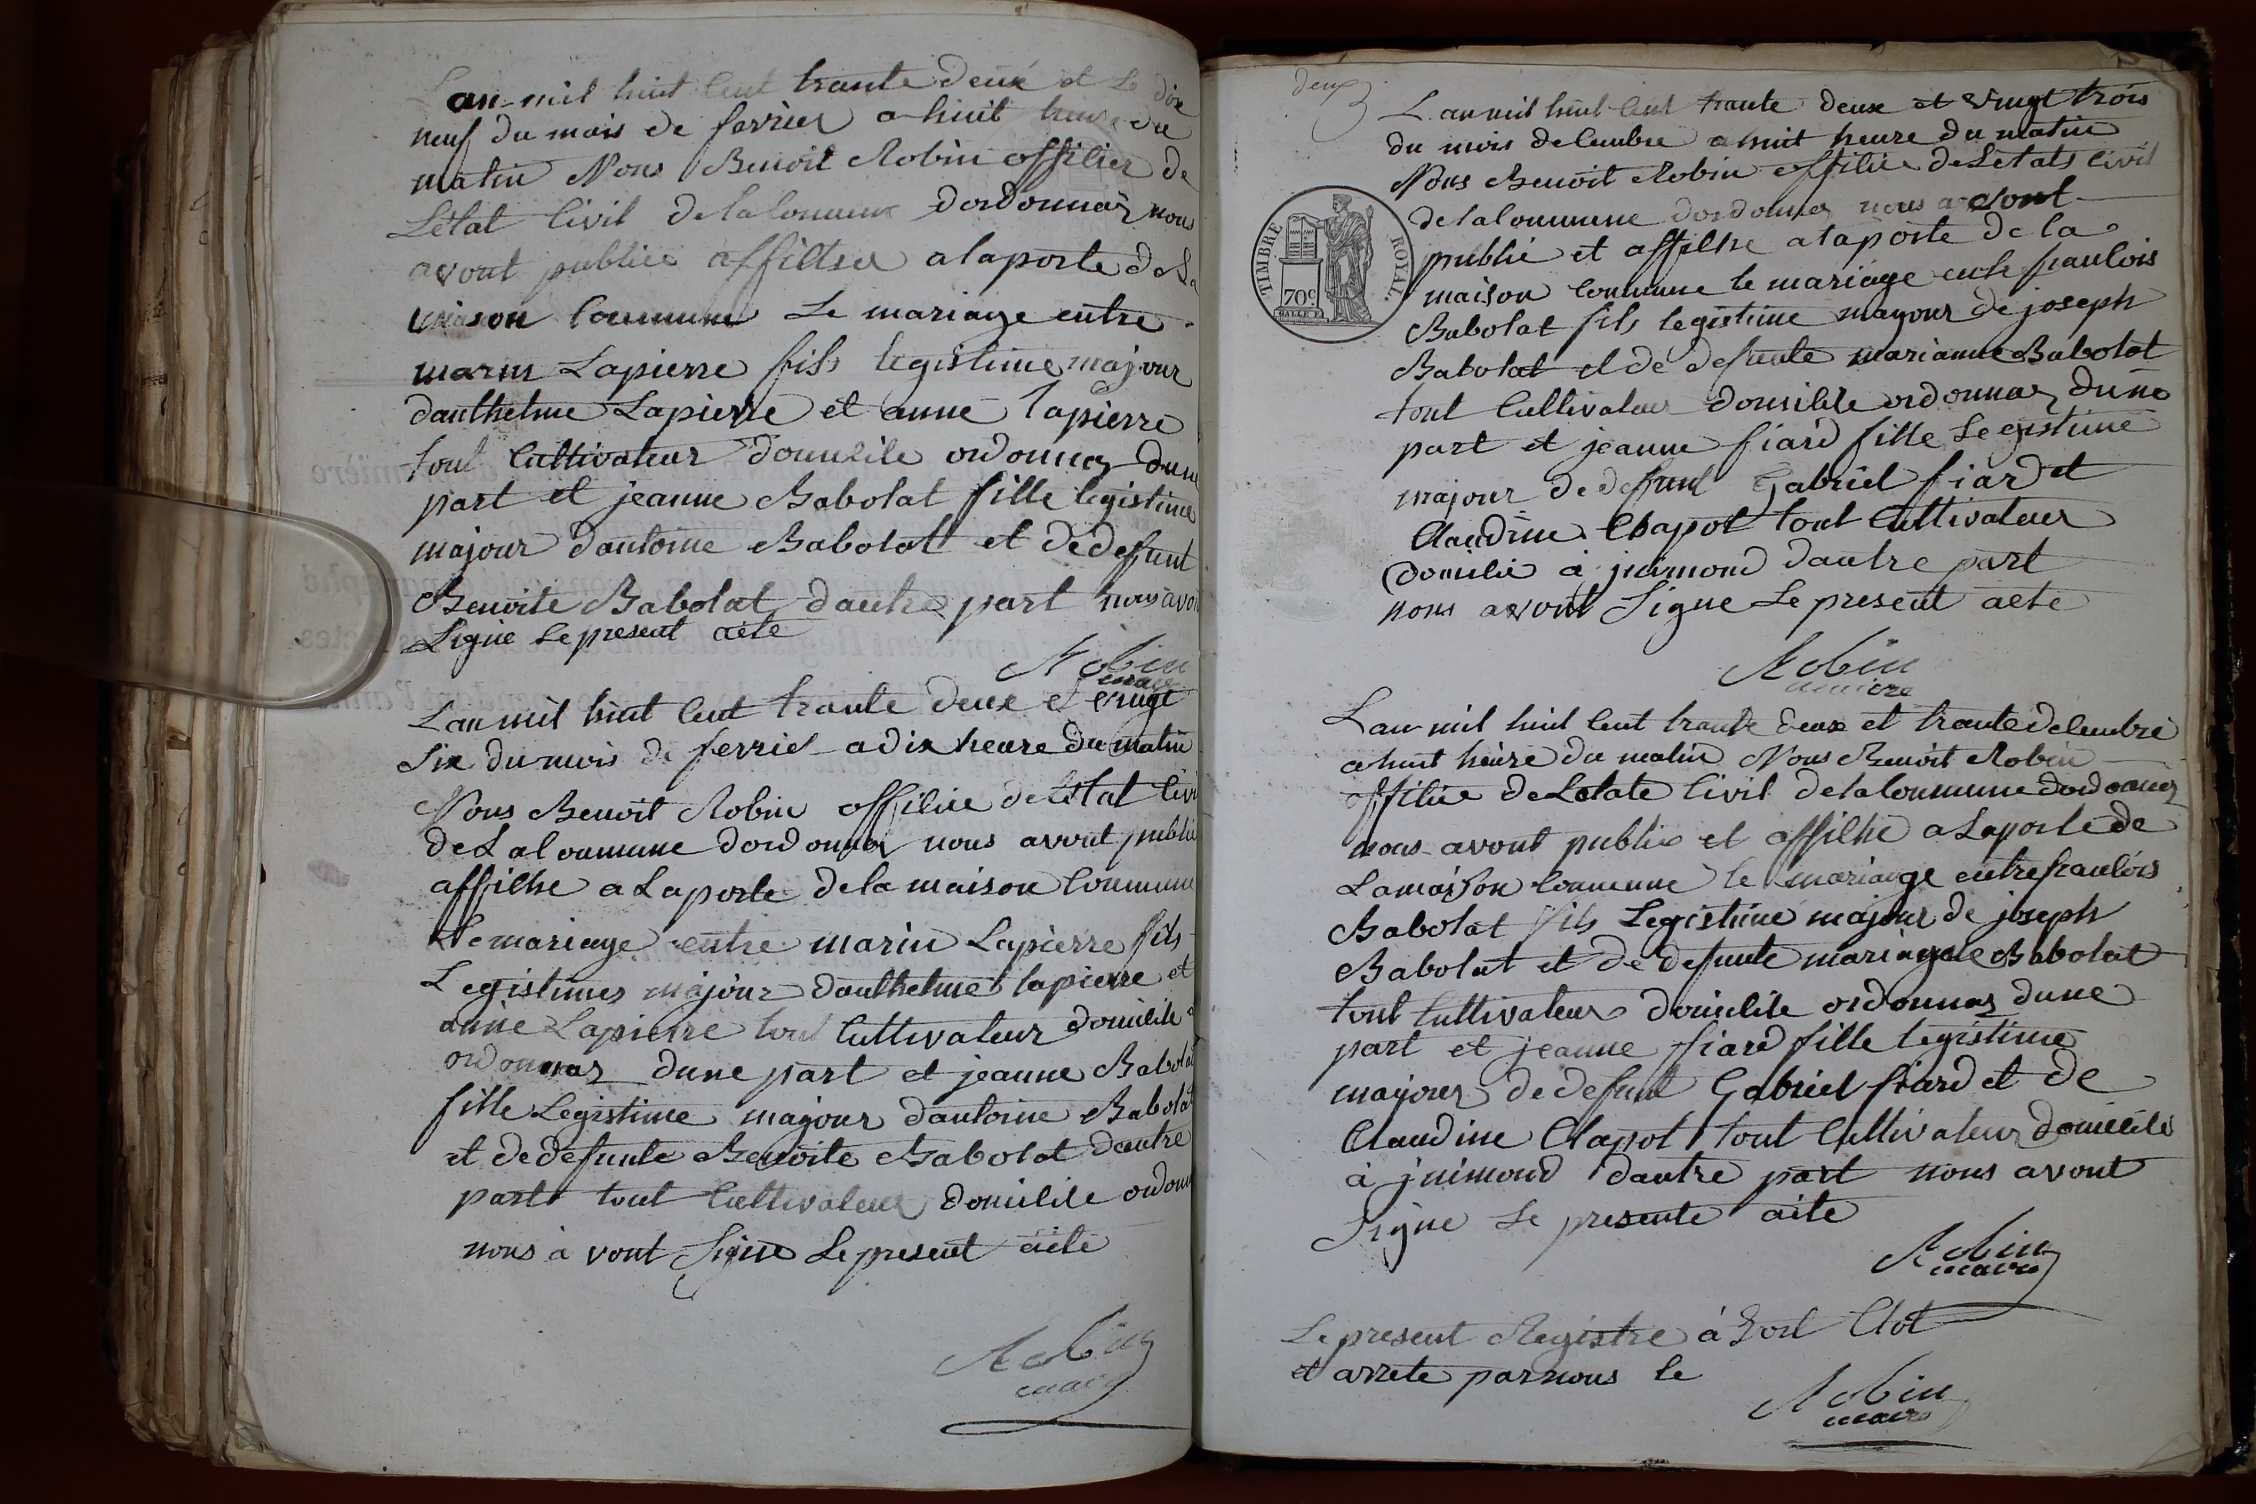 Lan mil huit Cent trante deux et Le dix
neuf du mois de fevrier a huit heure du
matin Nous Benoit Robin offilier de
Létat Civil delaComune dordonnaz nous
avont publiee affiltsee alaporte de La
maison Commune Le mariage entre
marin Lapierre fils legistime majour
danthelme Lapierre et anne lapierre
tout Cultivateur domicile ordonnaz dune
part et jeanne Babolat fille legistime
majour dantoine Babolat et dedeffunt
Benoite Babolat dautre part nous avon
Signe Le present acte
Robin
maire
Lan mil huit Cent trante deux et vingt
Six du mois de ferrier a dix heure du matin
Nous Benoit Robin offilie de létat Civi
de LaCommune dordonnaz nous avont publie
affilhe a Laporte dela maison Commune
Le mariage entre marin Lapierre fils
Legistimes majour danthelme lapierre et
anne Lapierre tout Cultivateur domicile a
ordonnaz dune part et jeanne Babolat
fille Legistime majour dantoine Babolat
et dedefunte Benoite Babolat dautre
part tout Cultivateur domicile ordonn
nous à vont Signe Le present acte
Robin
maire
deux
Lan mil huit Cent trante deux et vingt trois
du mois deCembre a huit heure du matin
Nous Benoit Robin offilie de Létats Civil
de la Commune dordonnaz nous avont
publié et affilhe alaporte de la
maison Commune le mariage entre franCois
Babolat fils legistime mayour de joseph
Babolat et de defunte marianne Babolat
tout Cultivateur domicile ordonnaz dune
part et jeanne fiard fille Legistime
majour de defunt Gabriel fiard et
Claudine Chapot tout Cultivateur
domicilié à jnimond dautre part
nous avont Signe Le present acte
Robin
maire
TIMBRE ROYAL
70c
Lan mil huit Cent trante deux et trante deCembre
a huit heure du matin Nous Benoit Robin
offilie de Letate Civil delaCommune dordonnaz
nous avont publie et affilhé a Laporte de
Lamaison Commune le mariauge entre franCois
Babolat fils Legistime majour de joseph
Babolat et de defunte mariagne Babolat
tout Cultivateur domicilie ordonnaz dune
part et jeanne fiard fille legistime
mayour de defunt Gabriel fiard et de
Claudine Clapot tout Cultivateur domicilié
à jnimond dautre part nous avont
Signe Le presente acte
Robin
maire
Le present Registre à Clot
et arrete parnous le
Robin
maire